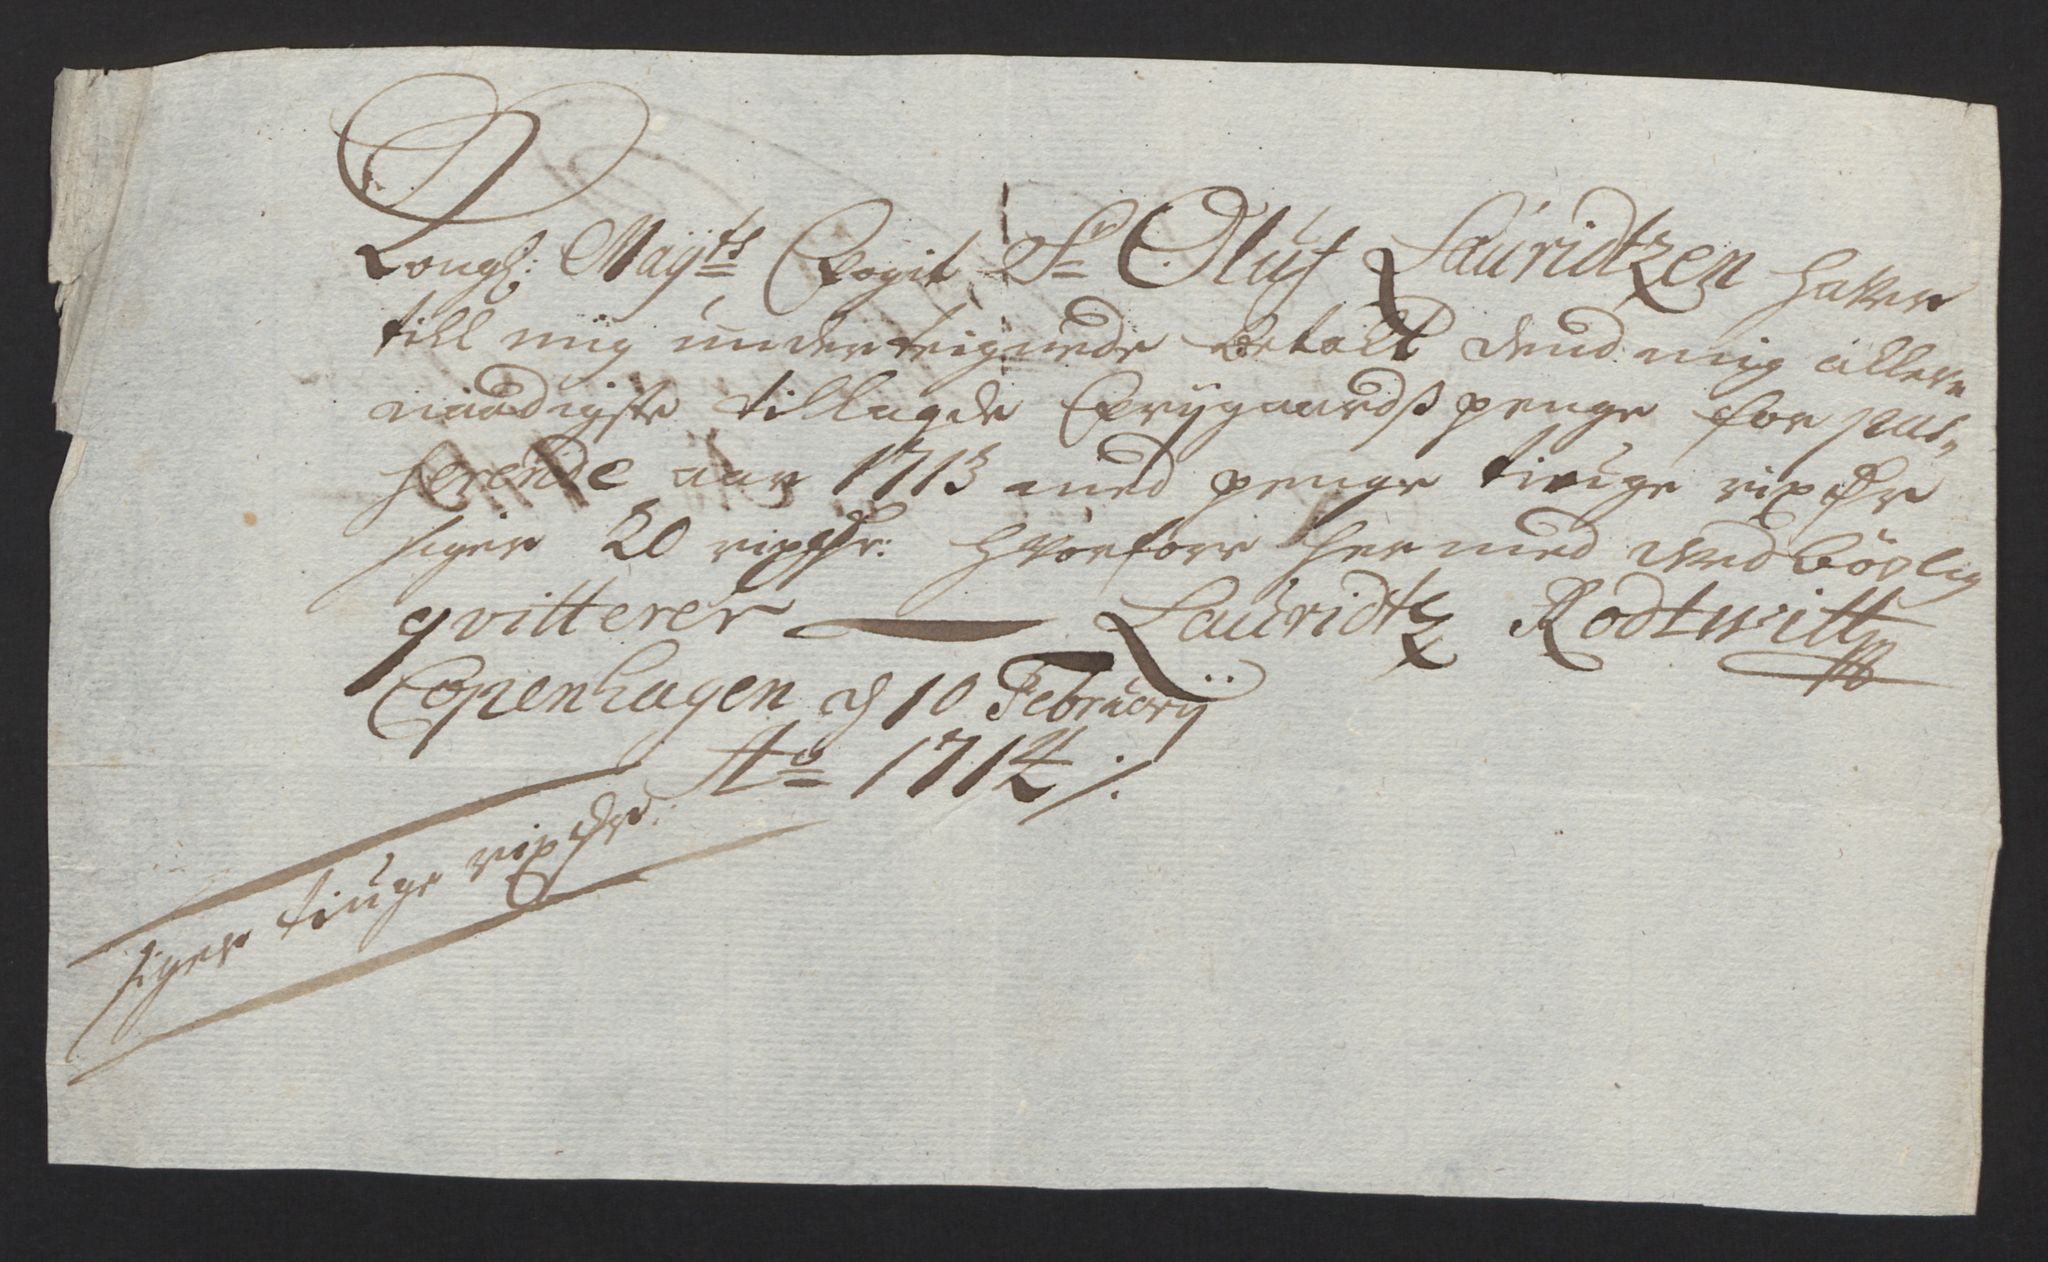 Kongl: Mayts Fogit Sr Oluf Lauridtzen haver
till mig underteignede betalt dend mig aller„
naadigste tillagde Frÿgaardspenge for pas„
herende aar 1713 med penge tiuge rixdlr
siger 20 rixdlr: hvorforre hermed vedbörlig
qvitterer Lauridtz Rodtwitt
Copenhagen d 10 Februarÿ
Ao 1714 /:
siger tiuge rixdlr: